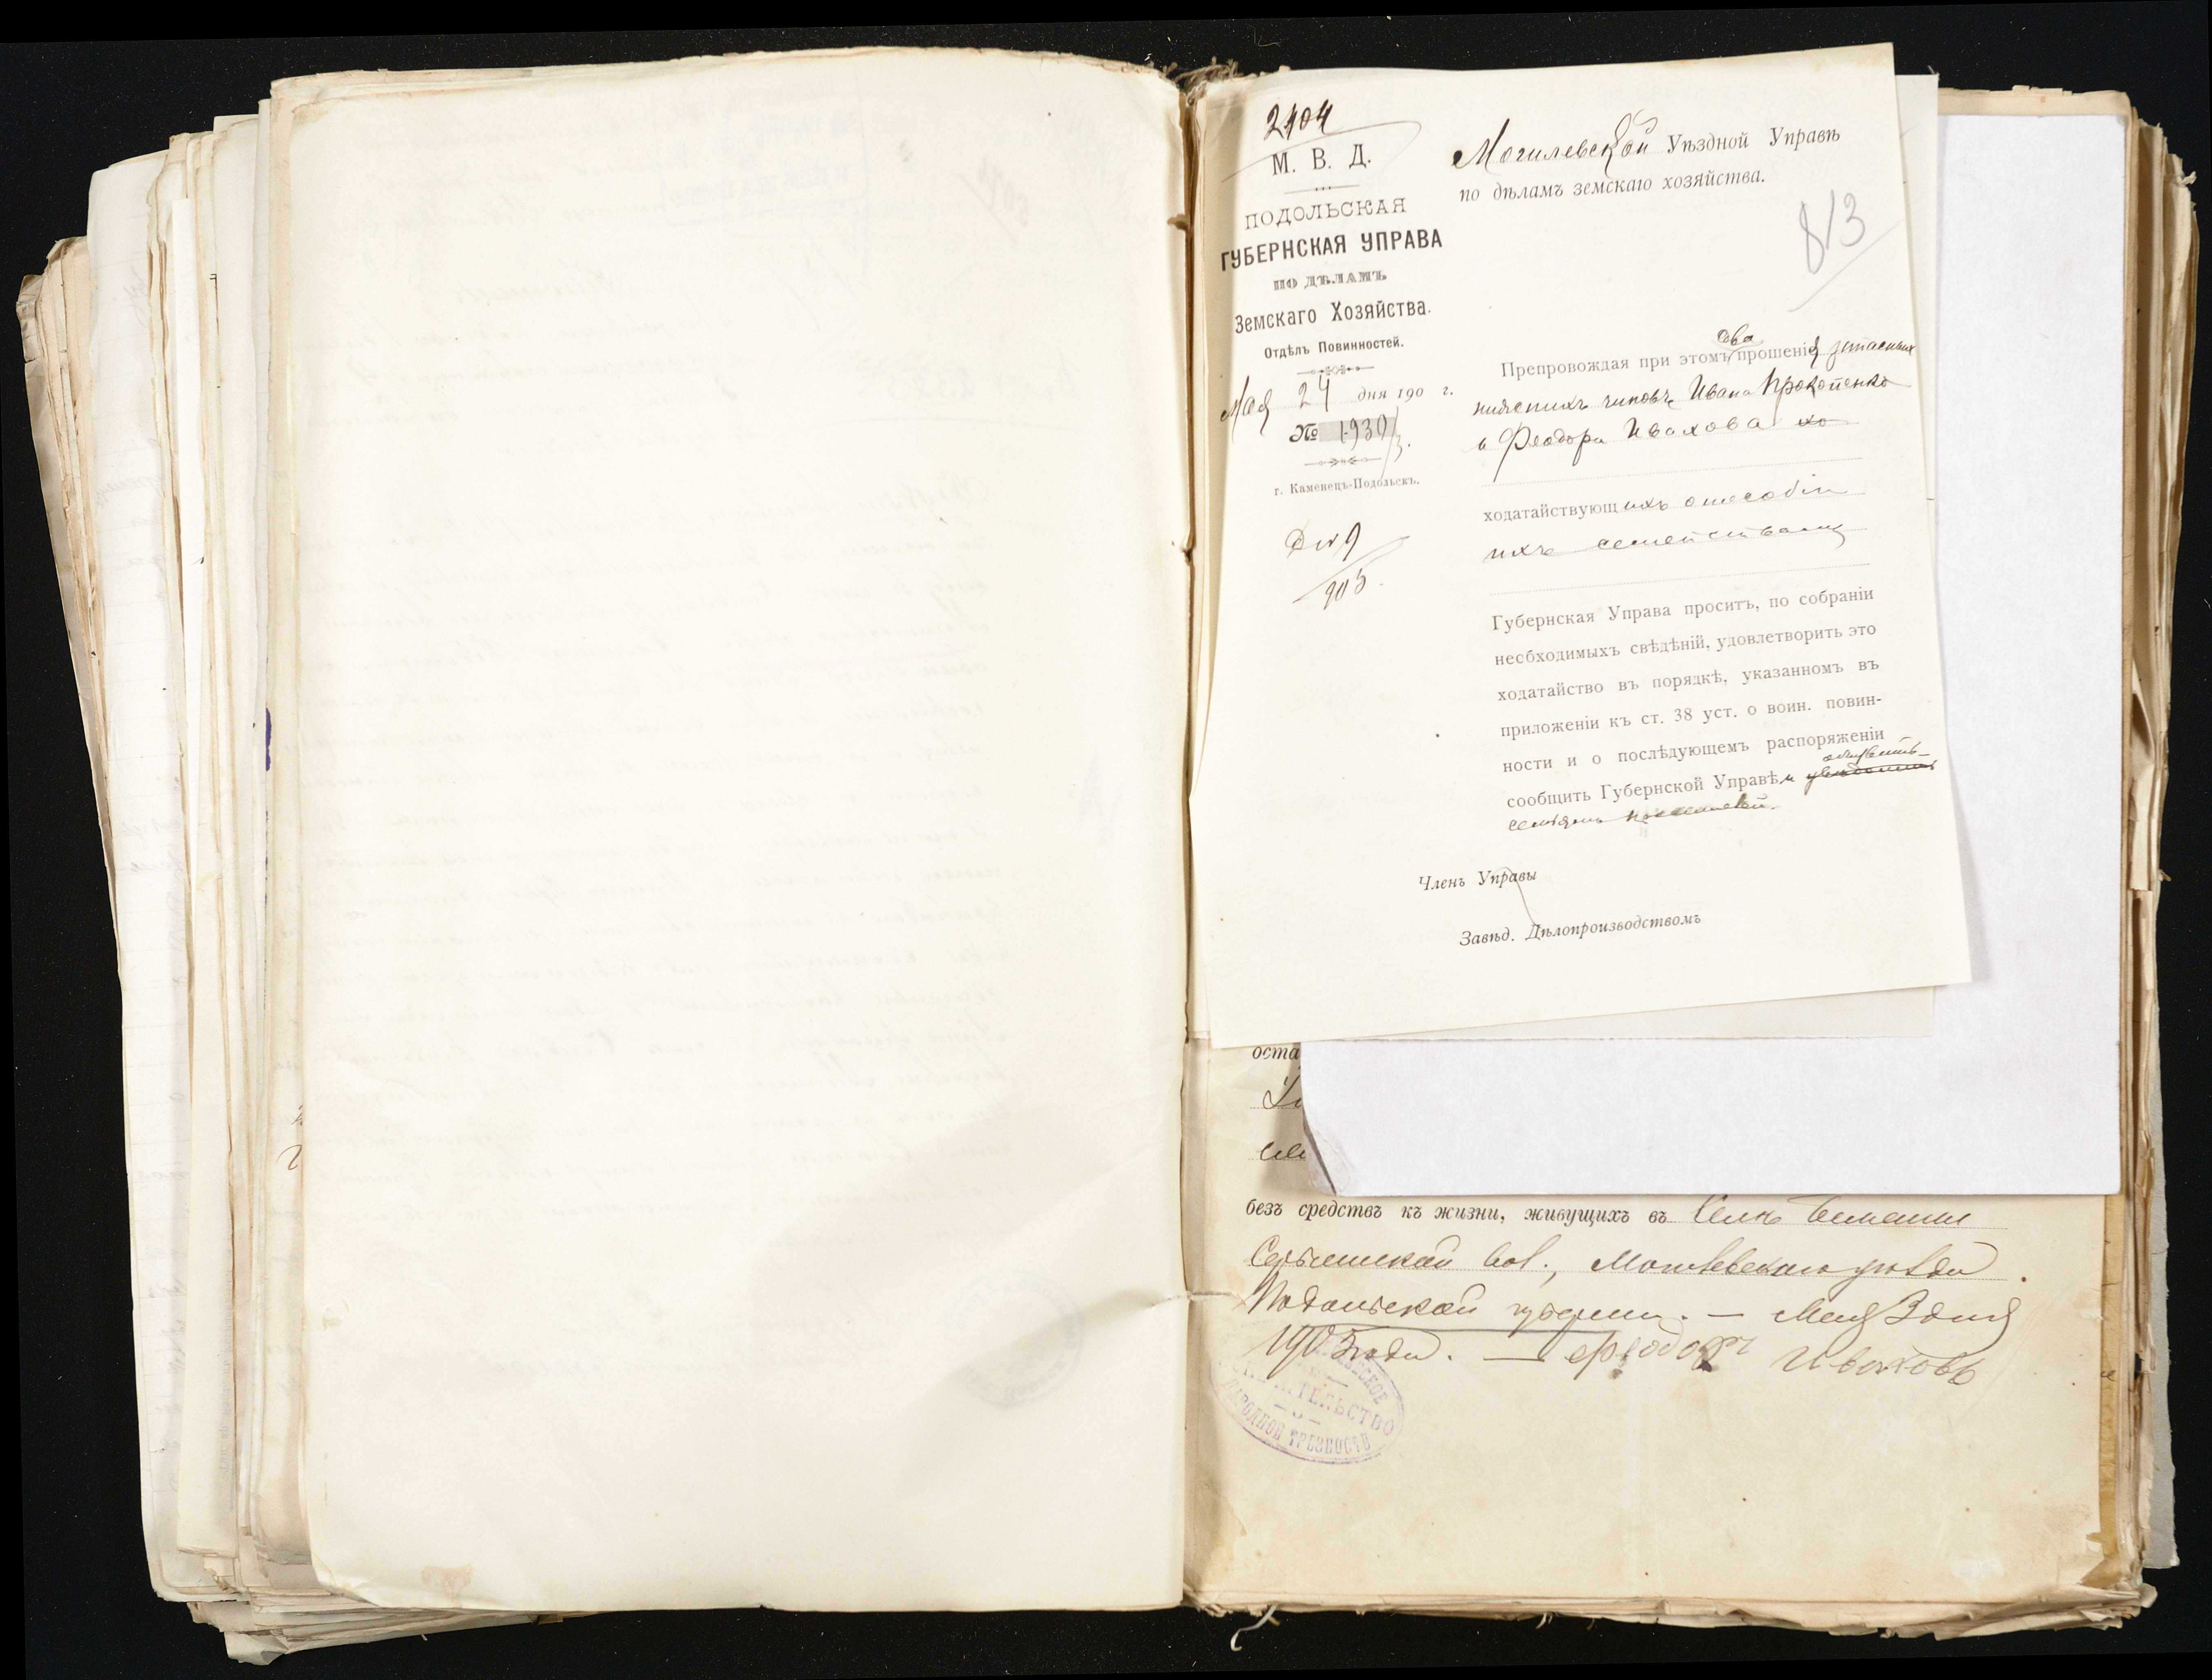 2404
М. В. Д.
ПОДОЛЬСКАЯ
ГУБЕРНСКАЯ УПРАВА
ПО ДѢЛАМЪ
Земскаго Хозяйства.
Отдѣлъ Повинностей.
Мая 24 дня 190 г.
№ 1930/3.
г. Каменецъ-Подольскъ.
905
Могилевской Уѣздной Управѣ
по дѣламъ земскаго хозяйства.
813
два
Препровождая при этомъ прошенія запасныхъ
нижнихъ чиновъ Ивана Прокопенко
и Феодора Ивахова
ходатайствующихъ о пособіи
ихъ семействамъ
Губернская Управа проситъ, по собраніи
необходимыхъ свѣдѣній, удовлетворить это
ходатайство въ порядкѣ, указанномъ въ
приложеніи къ ст. 38 уст. о воин. повин-
ности и о послѣдующемъ распоряженіи
сообщить Губернской Управѣ и
Членъ Управы
Завѣд. Дѣлопроизводствомъ
оста
безъ средствъ къ жизни, живущихъ въ Селѣ
вол., Могилевскаго уѣзда
Подольской губерніи. — Мая 3 дня
1905 года. — Феодоръ Иваховъ
НАРОДНОЙ ТРЕЗВОСТИ